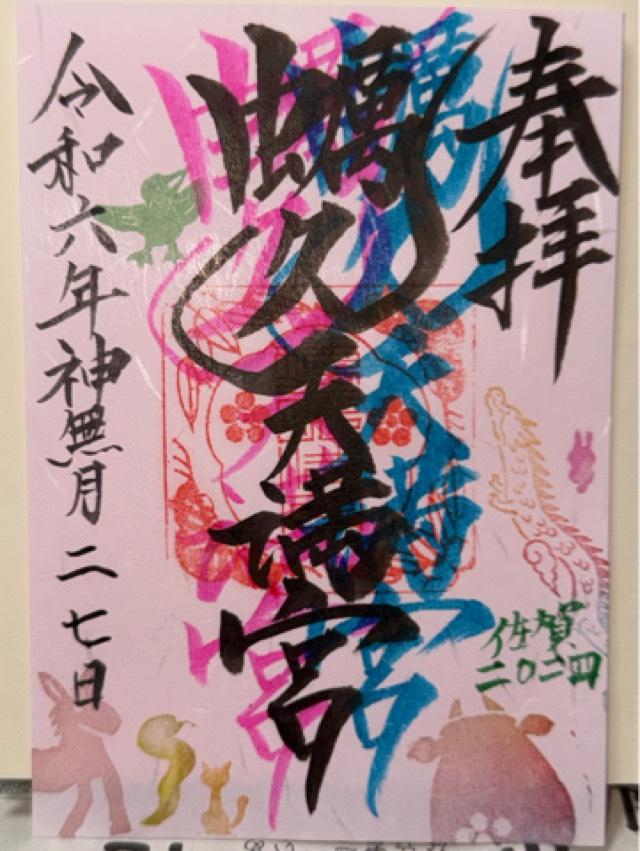 奉拝
佐賀
二〇二四
蠣久天満宮
令和六年神無月二七日